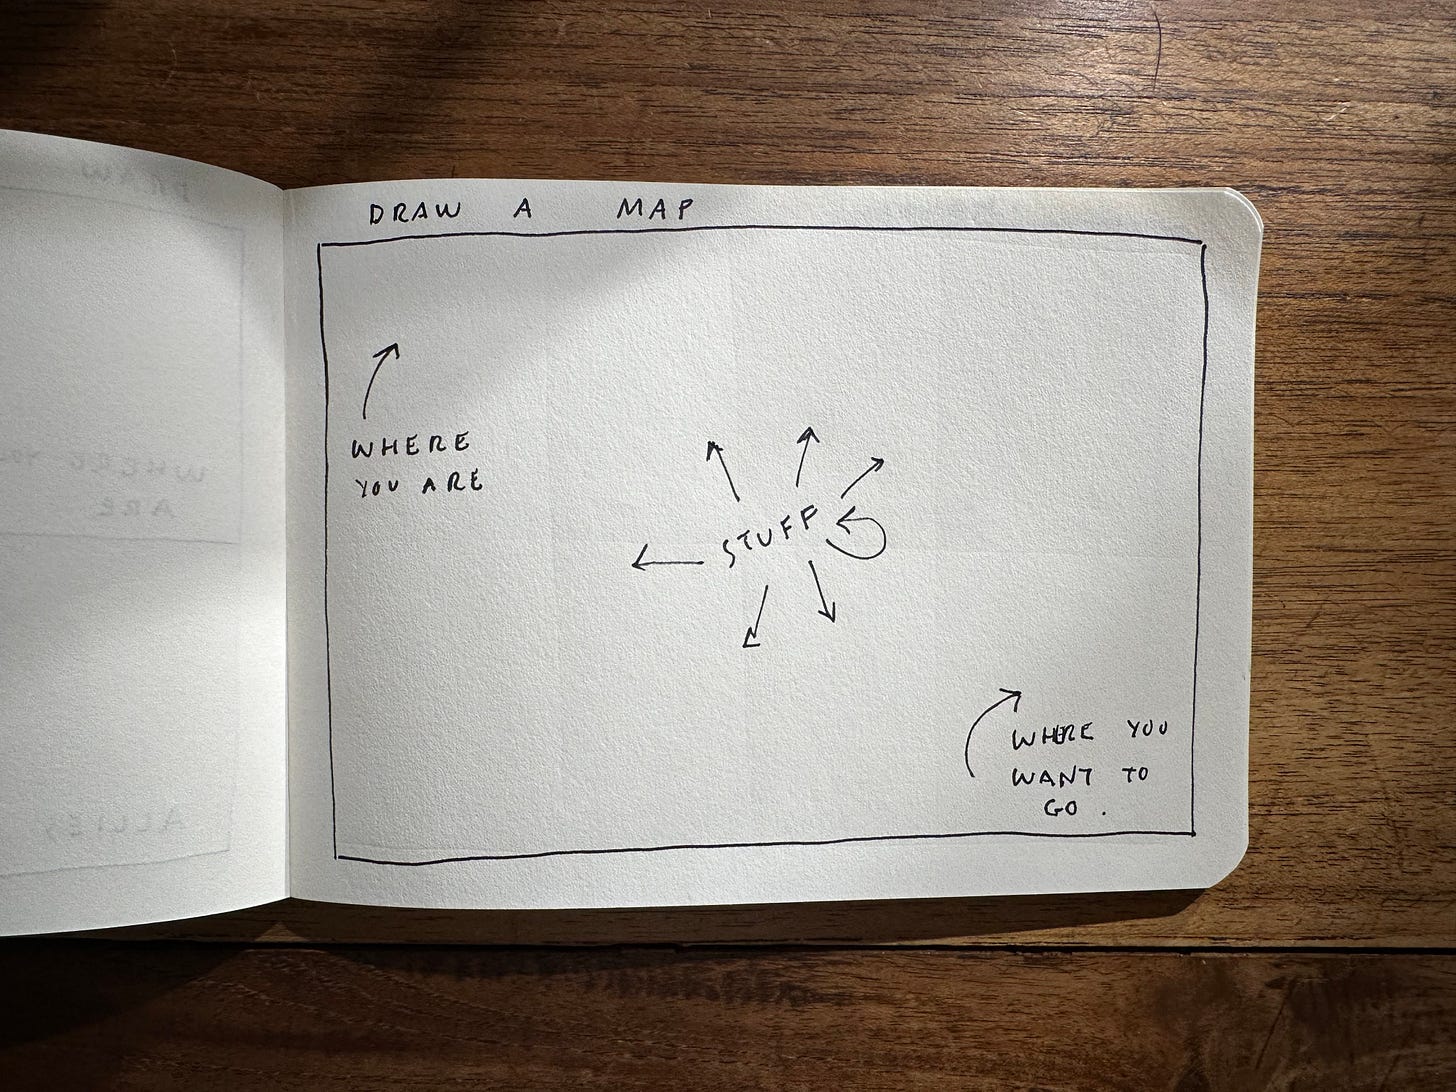 DRAW A MAP
WHERE
YOU ARE
STUFF
WHERE YOU
WANT TO
GO.